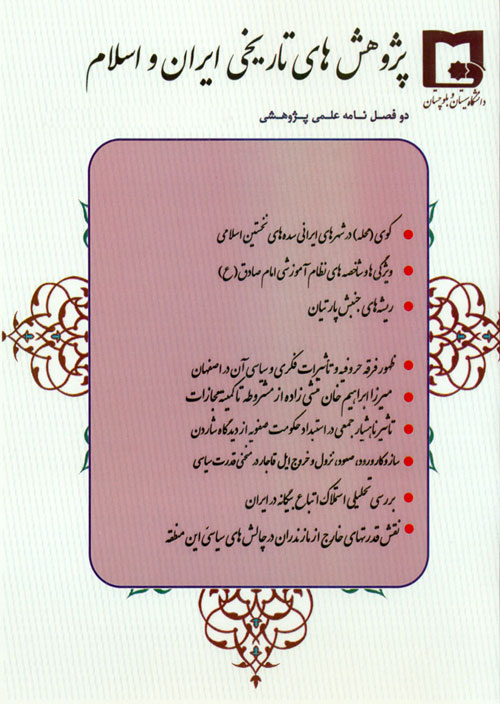 پژوهش های تاریخی ایران و اسلام
دانشگاه سیستان و بلوچستان
دو فصل نامه علمی پژوهشی
کوی (محله) در شهرهای ایرانی سده های نخستین اسلامی
ویژگی ها و شاخصه های نظام آموزشی امام صادق (ع)
ریشه های جنبش پارتیان
ظهور فرقه حروفیه و تأثیرات فکری و سیاسی آن در اصفهان
میرزا ابراهیم خان منشی زاده از مشروطه تا کمیته مجازات
تاثیر ناهشیار جمعی در استبداد حکومت صفویه از دیدگاه شاردن
ساز و کار ورود، صعود، نزول و خروج ایل قاجار در منحنی قدرت سیاسی
بررسی تحلیلی استملاک اتباع بیگانه در ایران
نقش قدرتهای خارج از مازندران در چالش های سیاسی این منطقه